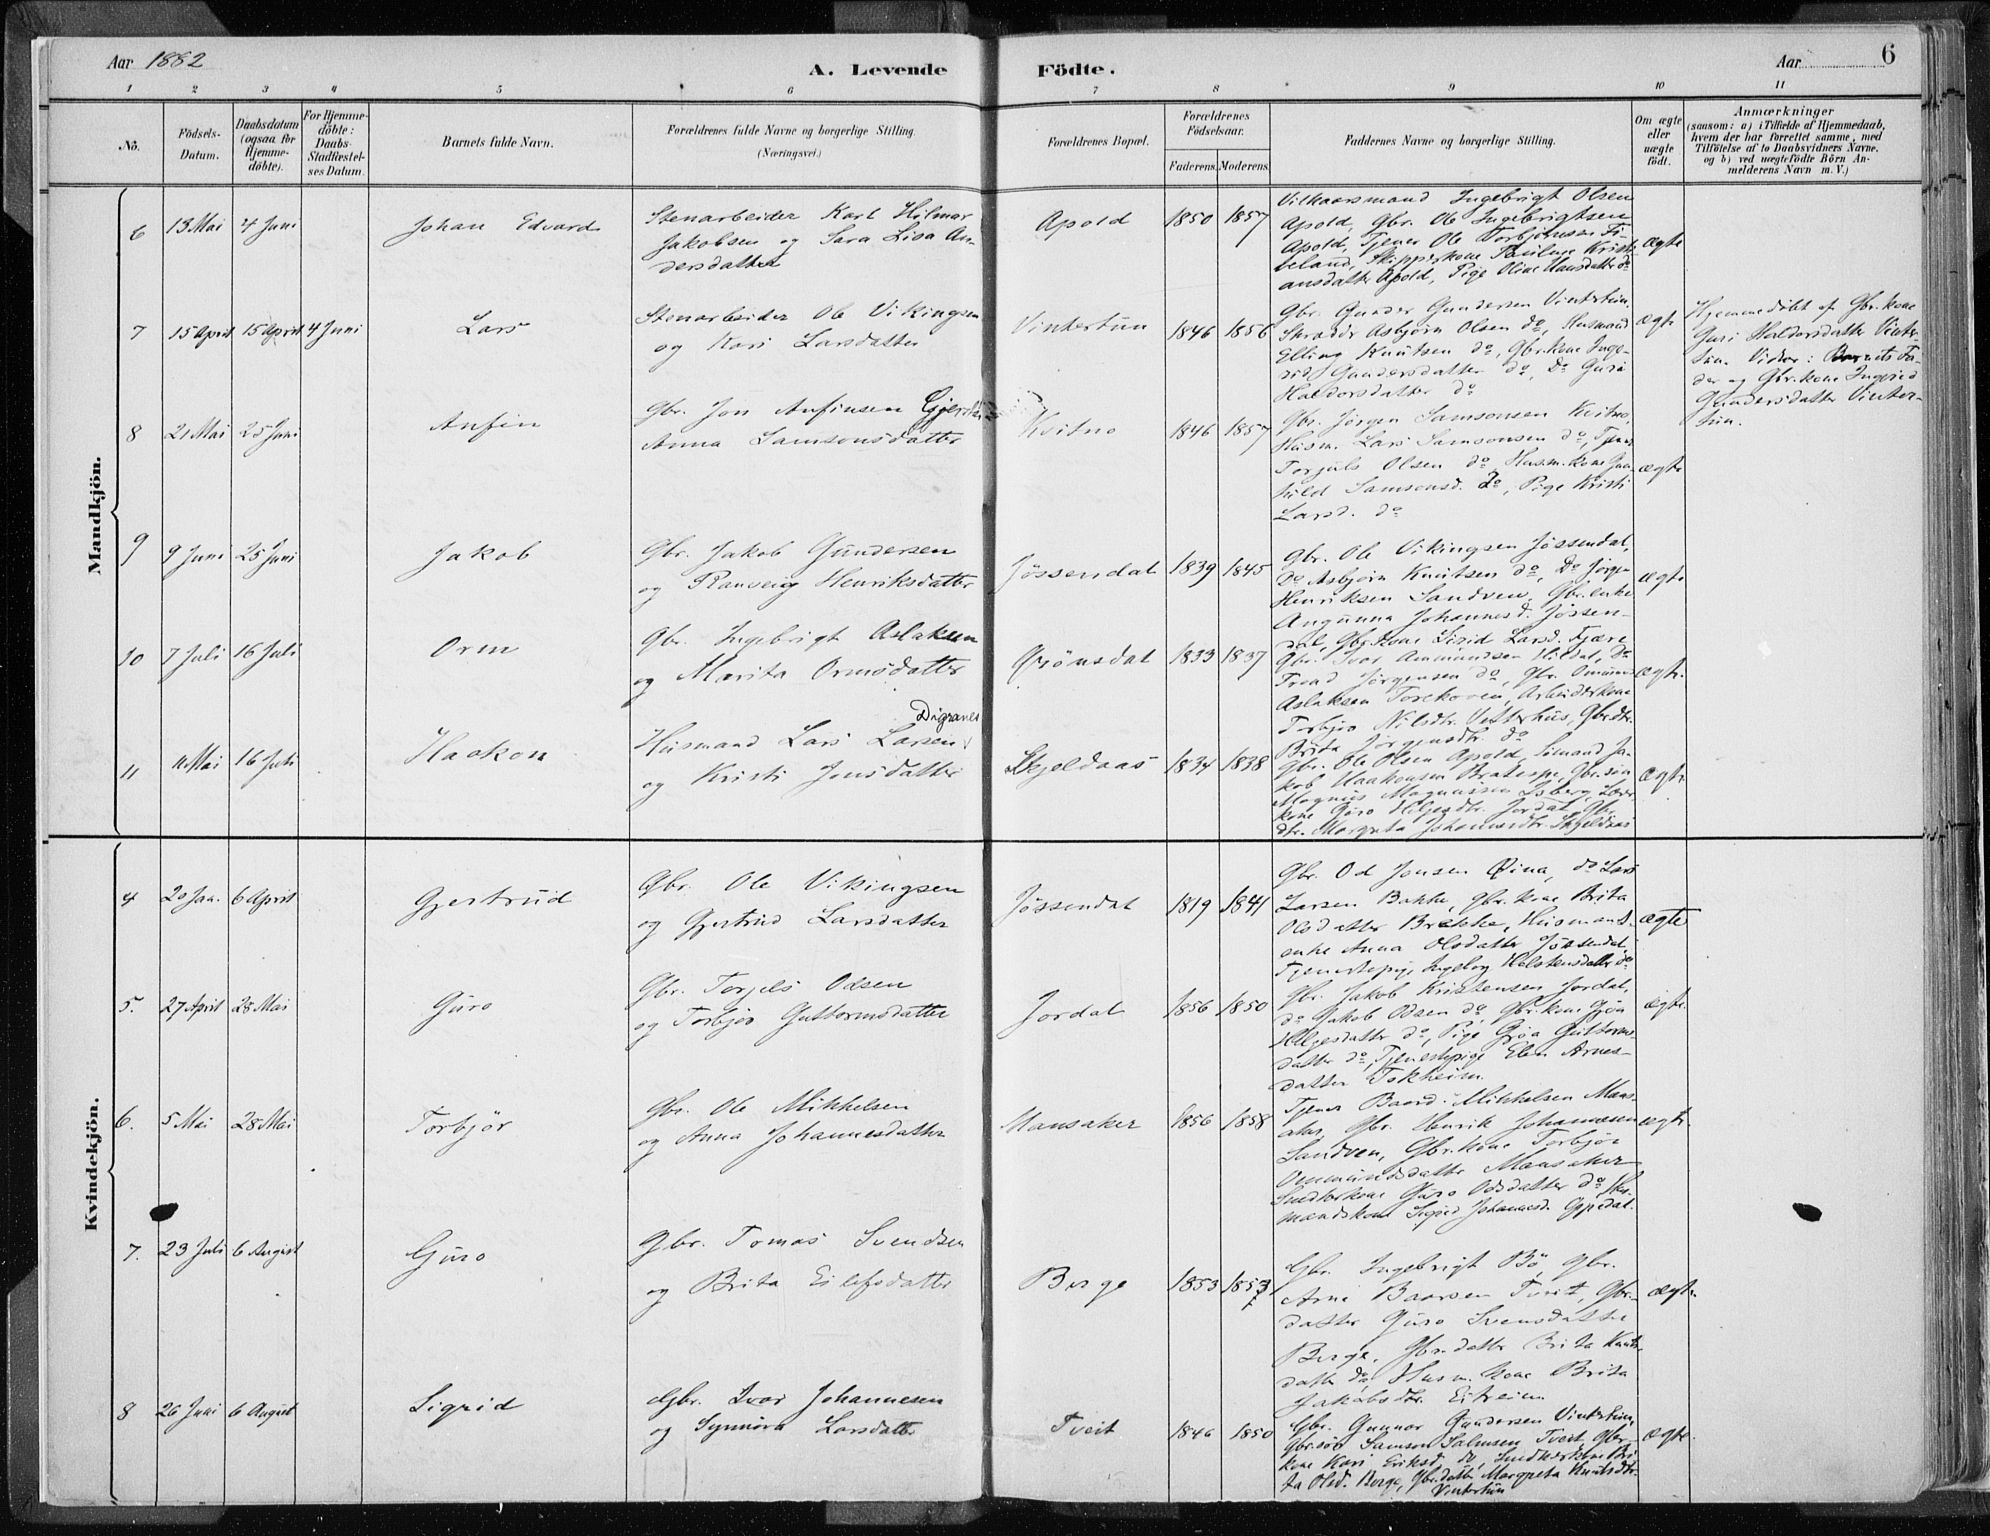 Aar 1882
A. Levende Födte.
Aar 6
1 2 3 4 5 6 7 8 9 10 11
No.
Födsels-
Datum.
Daabsdatum
(ogsaa for
Hjemme-
döbte).
For Hjemme-
döbte:
Daabs-
Stadfæstel-
ses Datum.
Barnets fulde Navn.
Forældrenes fulde Navne og borgerlige Stilling.
(Næringsvei.)
Forældrenes Bopæl.
Forældrenes
Födselsaar.
Faderens. Moderens.
Faddernes Navne og borgerlige Stilling.
Om ægte
eller
uægte
födt.
Anmærkninger
(saasom: a) i Tilfælde af Hjemmedaab,
hvem der har forrettet samme, med
Tilföielse af to Daabsvidners Navne,
og b) ved uægtefödte Börn An-
melderens Navn m. V.)
Mandkjön.
6 13 Mai 4 Juni
Johan Edvard
Stenarbeider Karl Hilmar
Jakobsen og Sara Lisa An-
dersdatter
Apold 1850 1857
Vilkaarsmand Ingebrigt Olsen
Apold, Gbr. Ole Ingebrigtsen
Apold, Tjener Ole Torbjörnsen
Skipperkone Pauline Kristi-
ansdatter Apold, Pige Oline Hansdatter do
ægte
7 15 April 15 April 4 Juni
Lars
Stenarbeider Ole Vikingsen
og Kari Larsdatter
Vintertun 1846 1856
Gbr. Gunder Gundersen Vintertun,
Skrædder Asbjörn Olsen do, Husmand
Elling Knutsen do, Gbr.kone Inge-
rid Gundersdatter do, Do Guri
Haldorsdatter do
ægte
Hjemmedöbt af Gbr.kone
Guri Haldorsdatter Vinter-
tun. Vidner: Barnets Fa-
der og Gbr.kone Ingerid
Gundersdatter Vinter-
tun.
8 21 Mai 25 Juni
Anfin
Gbr. Jon Anfinsen
Anna Samsonsdatter
Kvitno 1846 1857
Gbr. Jörgen Samsonsen Kvitno,
Husm. Lars Samsonsen do, Tjener
Torjuls Olsen do, Husm.kone Gun-
hild Samsonsd. do, Pige Kristi
Larsd. do
ægte
9 9 Juni 25 Juni
Jakob
Gbr. Jakob Gundersen
og Ranveig Henriksdatter
Jössendal 1839 1845
Gbr. Ole Vikingsen Jössendal,
Do Asbjörn Knutsen do, Do Jörgen
Henriksen Sandven, Gbr.enke
Angunna Johannesd. Jössen-
dal, Gbr.kone Sigrid Larsd. Tjære
ægte
10 7 Juli 16 Juli
Orm
Gbr. Ingebrigt Aslaksen
og Marita Ormsdatter
Grönsdal 1833 1837
Gbr. Ivar Ammundsen Hildal, Do
Trond Jörgensen do, Gbr.
Aslaksen Arbeiderkone
Torbjör Nilsdtr. Vetterhus, Gbr.dtr.
Brita Jörgensdtr. do
ægte.
11 11 Mai 16 Juli
Haakon
Digranes
Husmand Lars Larsen
og Kristi Jonsdatter
Skjeldaas 1834 1838
Gbr. Ole Olsen Apold, Ja-
kob Haakonsen Gbr.sön
Magnus Magnussen
kone Guro Helgesdtr. Jordal, Gbr.
dtr. Margreta Johannesdtr. Skjeldaas
ægte
Kvindekjön.
4 20 Jan. 6 April
Gjertrud
Gbr. Ole Vikingsen
og Gjertrud Larsdatter
Jössendal 1819 1841
Gbr. Od Jonsen do Lars
Larsen Bakke, Gbr.kone Brita
Olsdatter Brekke, Husmands-
enke Anna Olsdatter Jössendal,
Tjenestepige Ingeborg do
ægte
5. 27 April 28 Mai
Guro
Gbr. Torjels Odsen
og Torbjör Guttormsdatter
Jordal 1856 1850
Gbr. Jakob Kristensen Jordal,
do Jakob Odsen do, Gbr.kone Gjöa
Helgesdatter do, Pige Gjöa Guttorms-
datter do, Tjenestepige Elen Arnes-
datter Tokheim.
ægte.
6. 5 Mai 28 Mai
Torbjör
Gbr. Ole Mikkelsen
og Anna Johannesdatter
Mansaker 1856 1858
Tjener Baard Mikkelsen Mans-
aker, Gbr. Henrik Johannesen
Sandven, Gbr.kone Torbjör
Ommundsdatter Mansaker
Guro Odsdatter do, Hus-
mandskone Sigrid Johannesd.
ægte.
7. 23 Juli 6 August
Guro
Gbr. Tomas Svendsen
og Brita Eilefsdatter
Berge 1853 1853
Gbr. Ingebrigt Bö, Gbr.
Arne Baarsen Tveit, Gbr.-
datter Guro Svensdatter
Berge, Gbr.datter Brita Knuts-
datter do, Husm.kone Brita
Jakobsdtr. Eitreim.
ægte.
8 26 Juni 6 August
Sigrid
Gbr. Ivar Johannesen
og Synnöva Larsdatter
Tveit 1846 1850
Gbr. Gunnar Gundersen Vintertun,
Gbr.sön Samson Tveit, Gbr.-
kone Kari Eriksd. do, Bri-
ta Olsd. Berge, Gbr.datter Margreta Knutsdtr.
Vintertun
ægte.